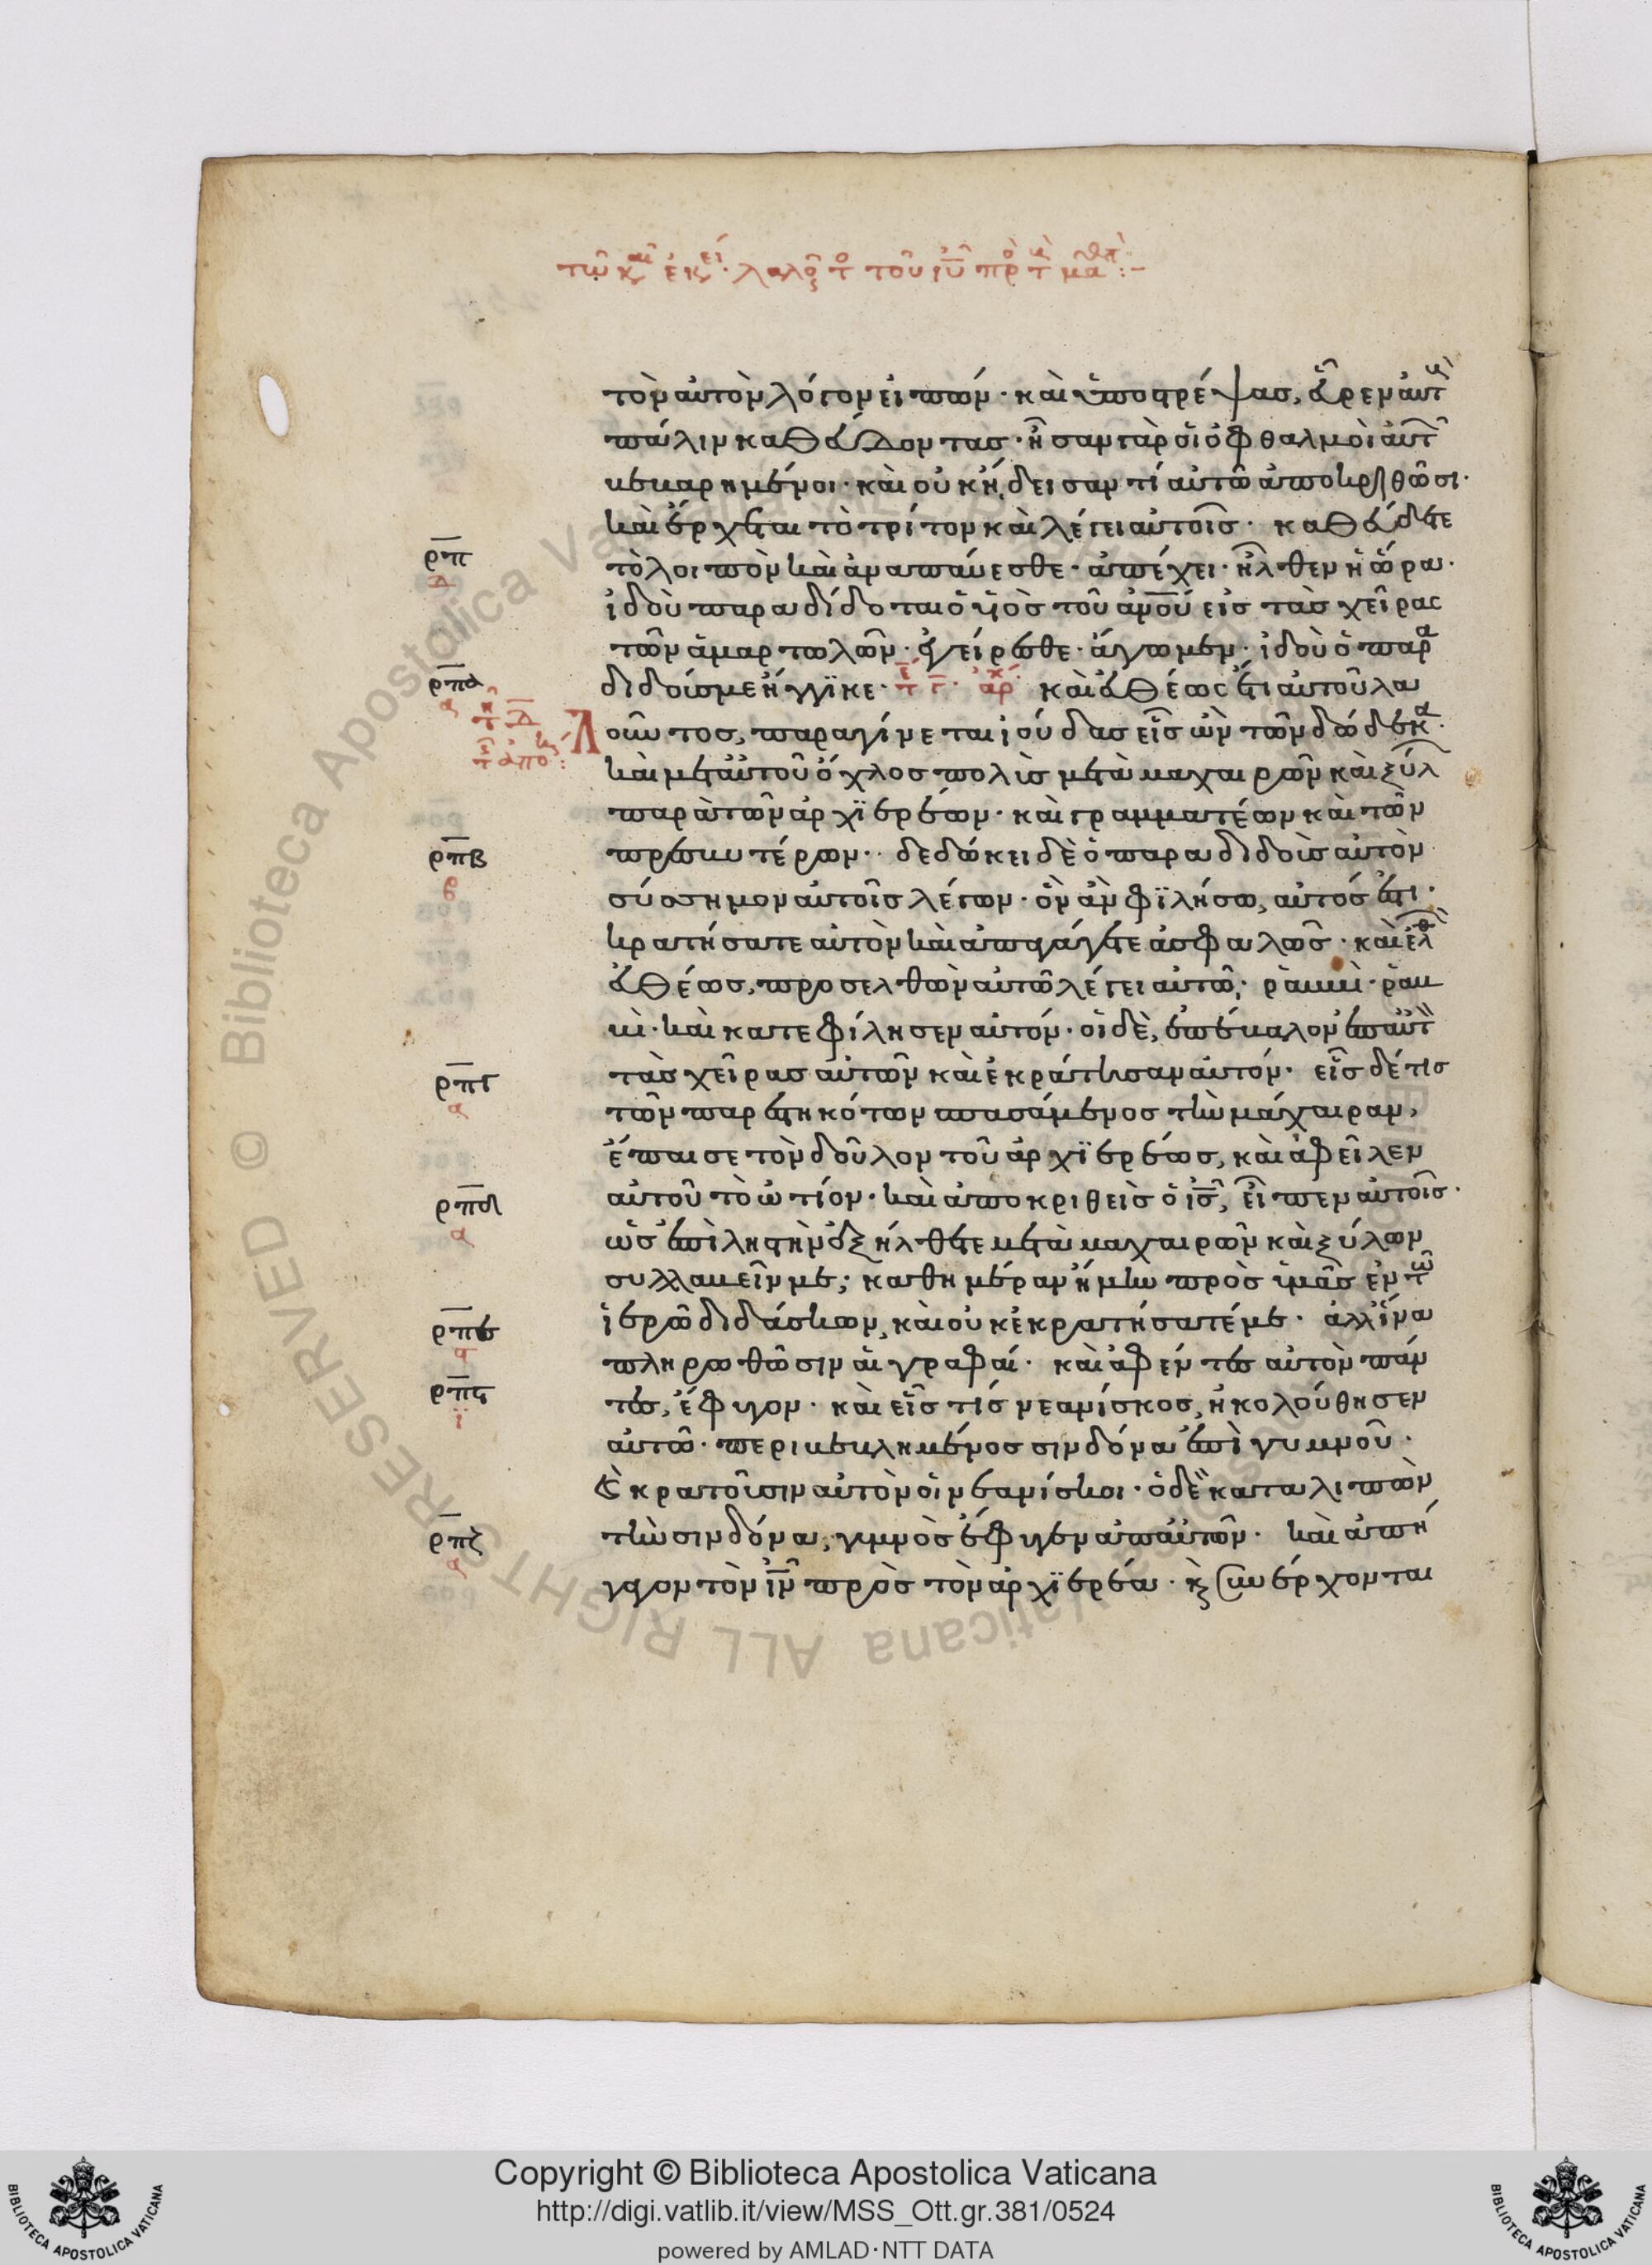 τῶ κ αι ἐκ ει · λαλοῦντ ο τοῦ ιυ πρ ο τ μαθ :-
τὸν αὐτὸν λόγον εἰπών · καὶ ὑποστρέψας, εὗρεν αὐτ
πάλιν καθεύδοντας · ἦσαν γὰρ οἱ ὀφθαλμοὶ αὐτ
βεβαρημένοι · καὶ οὐκ ἤδεισαν τί αὐτῶ ἀποκριθῶσι ·
καὶ ἔρχεται τὸ τρίτον καὶ λέγει αὐτοῖς · καθεύδετε
ρπ
δ
τὸ λοιπὸν καὶ ἀναπαύεσθε · ἀπέχει · ἦλθεν ἡ ὥρα ·
ἰδοὺ παραδίδοται ὁ υἱὸς τοῦ ἀνου εἰς τὰς χεῖρας
τῶν ἁμαρτωλῶν · ἐγείρεσθε · ἄγωμεν · ἰδοὺ ὁ παρα
ρπα
α
διδούς με ἤγγϊκε · τ ε γ · ἀρχ καὶ εὐθέως ἔτι αὐτοῦ λα
τ κ δ
τ ἀπο :
λοῦντος, παραγίνεται ἰούδας εἷς ὢν τῶν δώδεκα ·
καὶ μετ αὐτοῦ ὄχλος πολὺς μετὰ μαχαιρῶν καὶ ξύλ
παρὰ τῶν ἀρχϊερέων · καὶ γραμματέων καὶ τῶν
ρπβ
β
πρεσβυτέρων · δεδώκει δὲ ὁ παραδιδοὺς αὐτὸν
σύσσημον αὐτοῖς λέγων · ὃν ἂν φϊλήσω, αὐτός ἐστι ·
κρατήσατε αὐτὸν καὶ ἀπαγάγετε ἀσφαλῶς · καὶ ἐλθ
εὐθέως, προσελθὼν αὐτῶ λέγει αὐτῶ, ῥαββὶ · ῥαβ
βὶ · καὶ κατεφίλησεν αὐτόν · οἱ δὲ, ἐπέβαλον ἐπ αὐτ
ρπγ
α
τὰς χεῖρας αὐτῶν καὶ ἐκράτησαν αὐτόν · εἷς δέ τις
τῶν παρεστηκότων σπασάμενος τὴν μάχαιραν,
ἔπαισε τὸν δοῦλον τοῦ ἀρχϊερέως, καὶ ἀφεῖλεν
ρπδ
α
αὐτοῦ τὸ ὠτίον · καὶ ἀποκριθεὶς ὁ ις, εἶπεν αὐτοῖς ·
ὡς ἐπὶ ληστὴν ἐξήλθετε μετὰ μαχαιρῶν καὶ ξύλων
συλλαβεῖν με; καθημέραν ἤμην πρὸς ὑμᾶς ἐν τῶ
ρπε
ἱερῶ διδάσκων, καὶ οὐκ ἐκρατήσατέ με · ἀλλ ἵνα
πληρωθῶσιν αἱ γραφαί · καὶ ἀφέντες αὐτὸν πάν
ρπς
ϊ
τες, ἔφυγον · καὶ εἷς τίς νεανίσκος, ἠκολούθησεν
αὐτῶ · περιβεβλημένος σινδόνα ἐπὶ γυμνοῦ ·
κρατοῦσιν αὐτὸν οἱ νεανίσκοι · ὁ δὲ καταλιπὼν
ρπζ
α
τὴν σινδόνα, γυμνὸς ἔφυγεν ἀπ αὐτῶν · καὶ ἀπή
γαγον τὸν ιν πρὸς τὸν ἀρχϊερέα · κ συνέρχονται
Biblioteca Apostolica Vaticana ALL RIGHTS RESERVED ©
Copyright © Biblioteca Apostolica Vaticana
http://digi.vatlib.it/view/MSS_Ott.gr.381/0524
powered by AMLAD·NTT DATA
BIBLIOTECA APOSTOLICA VATICANA
BIBLIOTECA APOSTOLICA VATICANA